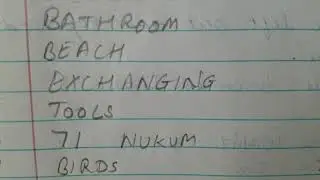 BATHROOM
BEACH
EXCHANGING
TOOLS
71 NUKUM
BIRDS